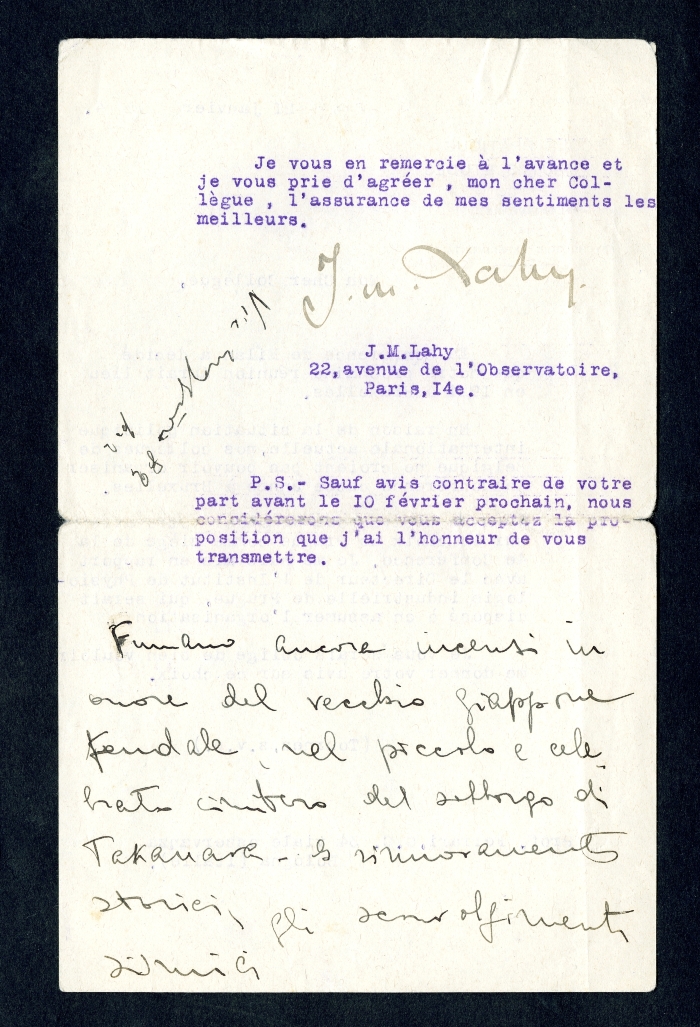 Je vous en remercie à l'avance et
je vous prie d'agréer , mon cher Col-
lègue , l'assurance de mes sentiments les
meilleurs.
J. M. Lahy.
J.M.Lahy
22,avenue de l'Observatoire,
Paris,I4e.
P.S.- Sauf avis contraire de votre
part avant le IO février prochain, nous
considérerons que vous acceptez la pro-
position que j'ai l'honneur de vous
transmettre.
Fumano ancora incensi in
onore del vecchio Giappone
feudale, nel piccolo e cele
brato cimitero del sobborgo di
Takanava -
storici, gli sconvolgimenti
sismici